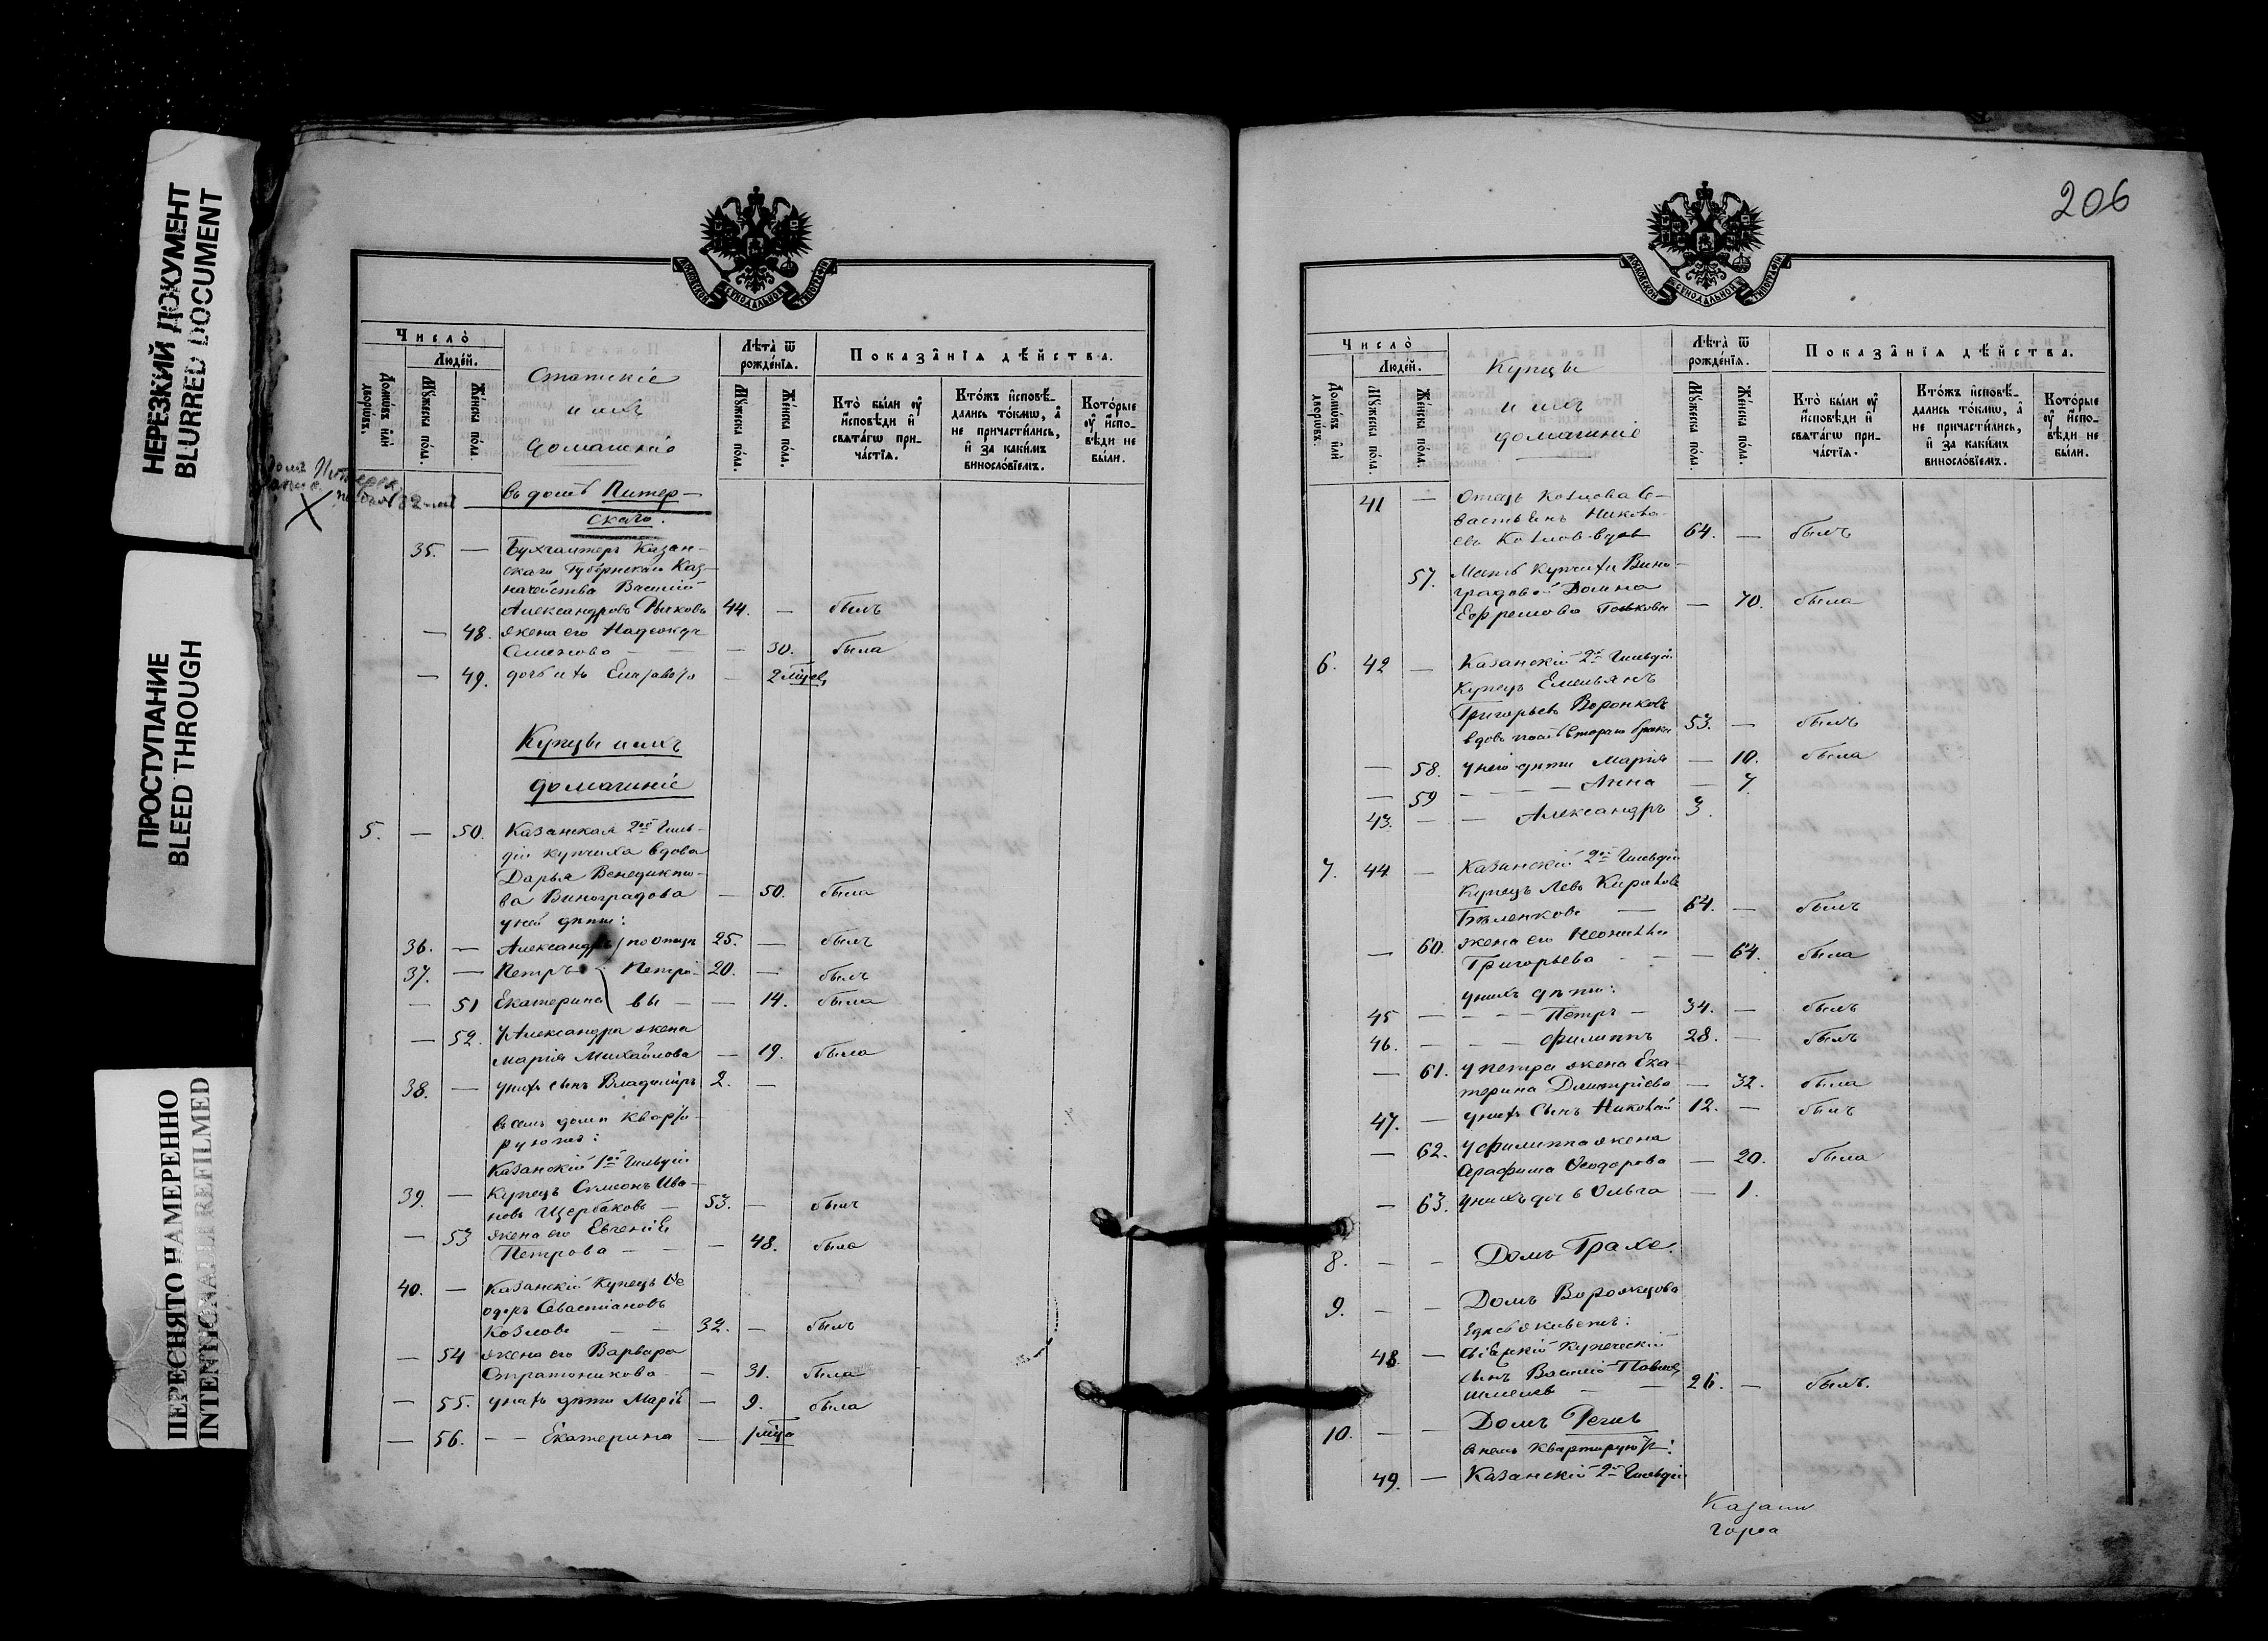 НЕРЕЗКИЙ ДОКУМЕНТ
BLURRED DOCUMENT
ПРОСТУПАНИЕ
BLEED THROUGH
ПЕРЕСНЯТО НАМЕРЕННО
INTENTIONALLY REFILMED
МОСКОВСКОЙ СѴНОДАЛЬНОЙ ТИПОГРАФІИ
Число̀
Люде́й.
Домѡ́въ и҆лѝ дворѡ́въ.
Мꙋ́жеска по́ла.
Же́нска по́ла.
Статскіе
и ихъ
домашніе
Лѣта̀ ѿ рожде́нїѧ.
Мꙋ́жеска по́ла.
Же́нска по́ла.
Показа̑нїѧ дѣ́йства.
Кто̀ бы́ли ᲂу҆ и҆сповѣ́ди и҆ свѧта́гѡ прича́стїѧ.
Кто́жъ и҆сповѣ́дались то́кмѡ, а҆ не причасти́лись, и҆ за каки́мъ винослова́емъ.
Кото́рые ᲂу҆ и҆сповѣ́ди не бы́ли.
въ домѣ Питер-
скаго.
35. — Бухгалтеръ Казан-
скаго Губернскаго Каз-
начейства Василій
Александровъ Рычковъ 44. — былъ
— 48. жена его Надежда
Семенова — 30. была
— 49. дочь ихъ Елизавета — 2 мѣсяц.
Купцы и ихъ
домашніе
5. — 50. Казанская 2ой Гиль-
діи купчиха вдова
Дарья Венедикто-
ва Виноградова — 50. была
у ней дѣти:
36. — Александръ по отцѣ 25. — былъ
37. — Петръ Петро- 20. — былъ
— 51 Екатерина вы — — 14. была
— 52. У Александра жена
Марія Михайлова — 19. была
38. — у нихъ сынъ Владиміръ 2. —
въ семъ домѣ кварти-
руютъ:
Казанскій 1ой Гильдіи
39. — Купецъ Симеонъ Ива-
новъ Щербаковъ — 53. — былъ
— 53 жена его Евгенія
Петрова — — 48. была
40. — Казанскій Купецъ Ѳе-
одоръ Севастіановъ
Козловъ — — 32. — былъ
— 54 жена его Варвара
Стратоникова — 31. была
— 55. у нихъ дѣти Марія — 9. была
— 56. — — Екатерина — 1 мѣс.
206
МОСКОВСКОЙ СѴНОДАЛЬНОЙ ТИПОГРАФІИ
Число̀
Люде́й.
Домѡ́въ и҆лѝ дворѡ́въ.
Мꙋ́жеска по́ла.
Же́нска по́ла.
Купцы
и ихъ
домашніе
Лѣта̀ ѿ рожде́нїѧ.
Мꙋ́жеска по́ла.
Же́нска по́ла.
Показа̑нїѧ дѣ́йства.
Кто̀ бы́ли ᲂу҆ и҆сповѣ́ди и҆ свѧта́гѡ прича́стїѧ.
Кто́жъ и҆сповѣ́дались то́кмѡ, а҆ не причасти́лись, и҆ за каки́мъ винослова́емъ.
Кото́рые ᲂу҆ и҆сповѣ́ди не бы́ли.
41 — Отецъ Козлова Се-
вастьянъ Никола-
евъ Козловъ вдовъ 64. — былъ
57. Мать Купчихи Вино-
градовой Домна
Ефремова — 70. была
6. 42 — Казанскій 2й Гильдіи
Купецъ Емельянъ
Григорьевъ Воронковъ
вдовъ послѣ втораго брака 53. — былъ
— 58. у него дѣти Марія — 10. была
— 59 — — — Анна — 7
43. — — Александръ 3.
7. 44 — Казанскій 2ой Гильдіи
Купецъ Левъ Кириловъ
Бѣленковъ — 64. — былъ
— 60. жена его
Григорьева — — 64. была
у нихъ дѣти:
45 — — — Петръ — 34. — былъ
46. — — — Филиппъ 28. — былъ
— 61. у Петра жена Ека-
терина Димитріева — 32. была
47. — у нихъ сынъ Николай 12. — былъ
— 62. у Филиппа жена
Серафима Ѳеодорова — 20. была
— 63. у нихъ дочь Ольга — 1.
8. — — Домъ Грахе.
9. — — Домъ Ворожцова
Гдѣ живетъ:
48. — купеческій
сынъ Василій Павловъ
Шмелевъ — — 26. — былъ.
10. — — Домъ
въ немъ квартируютъ:
49. — Казанскій 2й Гильдіи